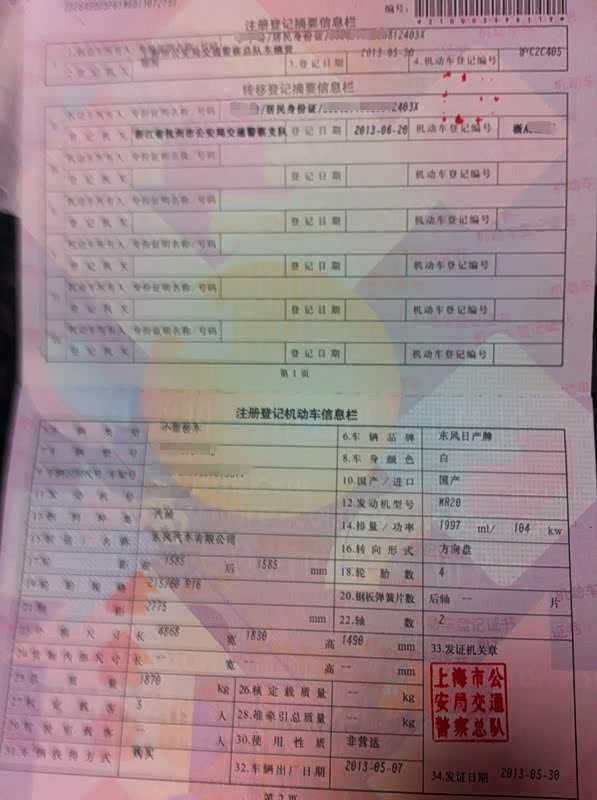 编号：
注册登记摘要信息栏
/居民身份证/ 812403X
3.登记日期 2013-05-30 4.机动车登记编号 沪C2C405
转移登记摘要信息栏
机动车所有人/身份证明名称/号码 /居民身份证/ 2403X
登记机关 浙江省杭州市公安局交通警察支队 登记日期 2013-06-20 机动车登记编号 浙A
机动车所有人/身份证明名称/号码
登记机关 登记日期 机动车登记编号
机动车所有人/身份证明名称/号码
登记机关 登记日期 机动车登记编号
机动车所有人/身份证明名称/号码
登记机关 登记日期 机动车登记编号
机动车所有人/身份证明名称/号码
登记机关 登记日期 机动车登记编号
机动车所有人/身份证明名称/号码
登记机关 登记日期 机动车登记编号
第1页
注册登记机动车信息栏
车辆类型 小型轿车 6.车辆品牌 东风日产牌
车辆型号 8.车身颜色 白
车辆识别代号/车架号 10.国产/进口 国产
发动机号 12.发动机型号 MR20
燃料种类 汽油 14.排量/功率 1997 ml/ 104 kw
制造厂名称 东风汽车有限公司 16.转向形式 方向盘
轮距 前 1585 后 1585 mm 18.轮胎数 4
轮胎规格 215/60 R16 20.钢板弹簧片数 后轴 -- 片
轴距 2775 mm 22.轴数 2
外廓尺寸 长 4868 宽 1830 高 1490 mm 33.发证机关章
货箱内部尺寸 长 -- 宽 -- 高 -- mm
上海市公安局交通警察总队
总质量 1870 kg 26.核定载质量 -- kg
核定载客 5 人 28.准牵引总质量 -- kg
驾驶室载客 -- 人 30.使用性质 非营运
31.车辆获得方式 购买 32.车辆出厂日期 2013-05-07 34.发证日期 2013-05-30
第2页